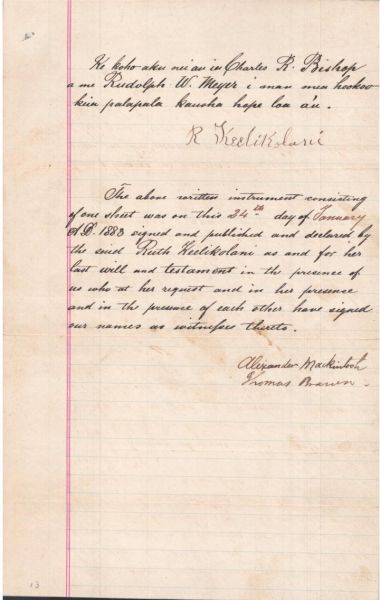 Ke koho aku nei au ia Charles R. Bishop
a me Rudolph W. Meyer i mau mea hooko
kuu palapala kauoha hope loa a'u.
R Keelikolani
The above written instrument consisting
of one sheet was on this 24th day of January
A.D. 1883 signed and published and declared by
the said Ruth Keelikolani as and for her
last will and testament in the presence of
us who at her request and in her presence
and in the presence of each other have signed
our names as witnesses thereto.
Alexander Mackintosh
Thomas Brown
13